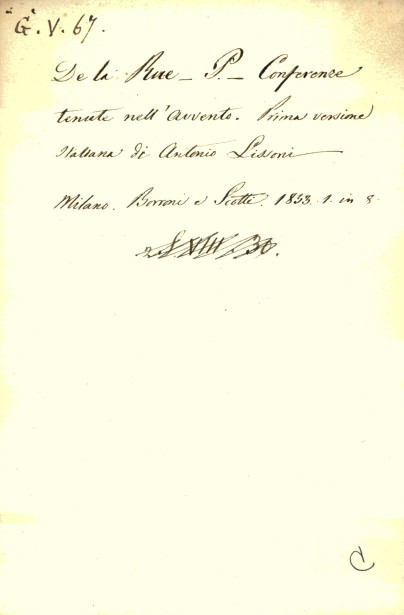 G. V. 67.
De la Rue - P. - Conferenze
tenute nell'avvento. Prima versione
Italiana di Antonio Lissoni
Milano. Borroni e Scotti. 1853. 1. in 8.
C